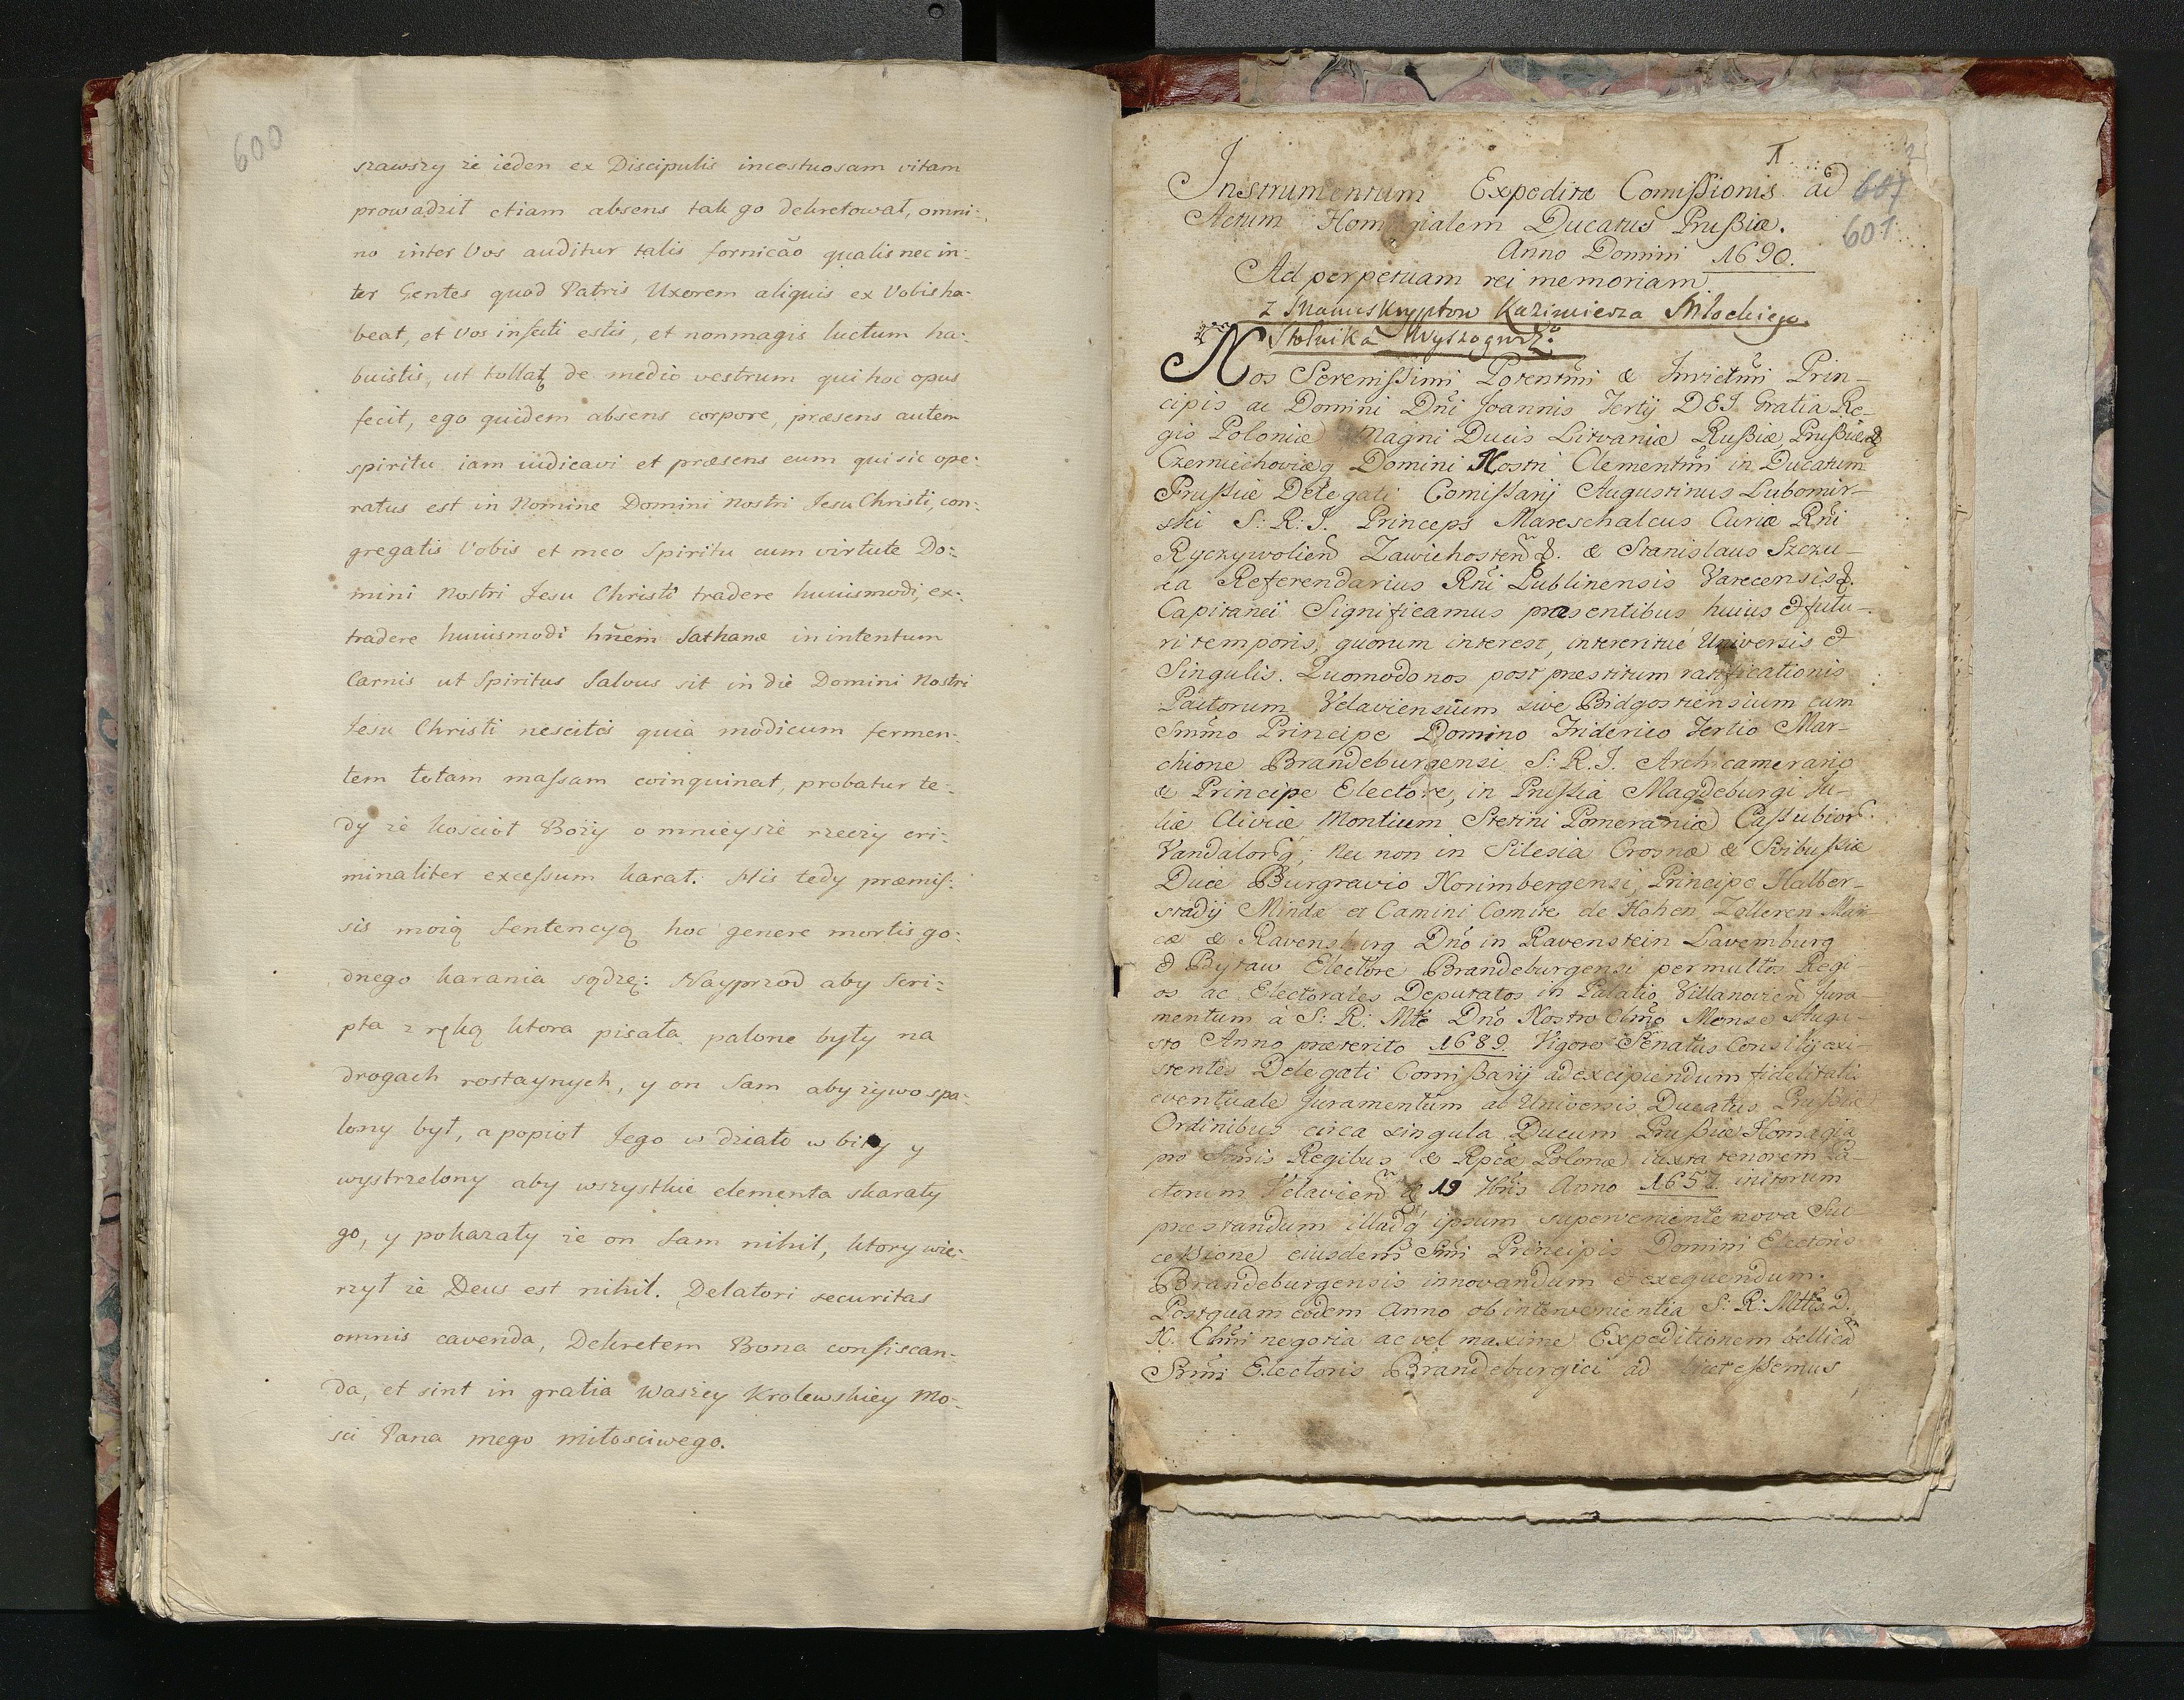 600
szawszy że ieden ex Discipulis incestuosam vitam
prowadził etiam absens tak go dekretował, omni-
no inter Vos auditur talis fornicão qualis nec in-
ter Gentes quod Patris Uxorem aliquis ex Vobis ha-
beat, et Vos infecti estis, et non magis luctum ha-
buistis, ut tollat de medio vestrum qui hoc opus
fecit, ego quidem absens corpore, præsens autem
spiritu iam iudicavi et præsens eum qui sic ope-
ratus est in Nomine Domini Nostri Jesu Christi, con-
gregatis Vobis et meo Spiritu cum virtute Do-
mini Nostri Jesu Christi tradere huiusmodi, ex-
tradere huiusmodi hñem Sathanæ in intentum
Carnis ut Spiritus Salvus sit in die Domini Nostri
Jesu Christi nescitis quia modicum fermen-
tem totam massam coinquinat, probatur te-
dy że kościoł Boży o mnieysze rzeczy cri-
minaliter excessum karał. His tedy præmis-
sis moią Sentencyą hoc genere mortis go-
dnego karania sądzę: Nayprzod aby Scri-
pta z ręką ktora pisała palone były na
drogach rostaynych, y on Sam aby żywo spa-
lony był, a popioł Jego w działo wbity y
wystrzelony aby wszystkie elementa skarały
go, y pokazały że on Sam nihil, ktory wie-
rzył że Deus est nihil. Delatori securitas
omnis cavenda, Dekretem Bona confiscan-
da, et sint in gratia Waszey Krolewskiey Mo-
sci Pana mego miłosciwego.
1
Instrumentum Expeditæ Comißionis ad
607
Actum Homagialem Ducatus Prußiæ.
601
Anno Domini 1690.
Ad perpetuam rei memoriam
z Manuskryptow Kazimierza Młockiego
Stolnika Wyszogrodz:
Nos Serenißimi Potentmi & Invictmi Prin-
cipis ac Domini Dni Joannis Tertij DEI Gratia Re-
gis Poloniæ Magni Ducis Litvaniæ Rußiæ Prußiæ
Czerniechoviæq Domini Nostri Clementmi in Ducatum
Prußiæ Delegati Comißarij Augustinus Lubomir-
ski S: R: I. Princeps Mareschalcus Curiæ Rni
Ryczywolien Zawichosten &. & Stanislaus Szczu-
ka Referendarius Rni Lublinensis Varecensis &.
Capitanei Significamus præsentibus huius & futu-
ri temporis, quorum interest, intereritue Universis &
Singulis. Quomodo nos post præstitum ratificationis
Pactorum Velaviensium sive Bidgostiensium cum
Smmo Principe Domino Friderico Tertio Mar-
chione Brandeburgensi S: R. I. Archicamerario
& Principe Electore, in Prußia Magdeburgi Ju-
liæ Cliviæ Montium Stetini Pomeraniæ Caßubior
Vandalorq; nec non in Silesia Crosnæ & Svibußiæ
Duce Burgravio Norimbergensi, Principe Halber-
stadij Mindæ et Camini Comite de Hohen Zolleren Mar-
cæ & Ravensburg Dno in Ravenstein Lavemburg
& Bytaw Electore Brandeburgensi per multos Regi-
os ac Electorales Deputatos in Palatio Villanovien Jura-
mentum à S: R: Mte Dno Nostro Clmo Mense Augu-
sto Anno præterito 1689. Vigore Senatus Consilij exi-
stentes Delegati Comißarij ad excipiendum fidelitatis
eventuale Juramentum ab Universis Ducatus Prußiæ
Ordinibus circa singula Ducum Prußiæ Homagia
pro Smis Regibus & Rpca Polona iuxta tenorem Pa-
ctorum Velavien & 19 7bris Anno 1657 initorum
præstandum illudq ipsum superveniente nova Suc-
ceßione eiusdem Smi Principis Domini Electoris
Brandeburgensis innovandum & exequendum.
Postquam eodem Anno ob intervenientia S: R: Mttis D.
N. Clmi negotia ac vel maxime Expeditionem bellicã
Smi Electoris Brandeburgici ad